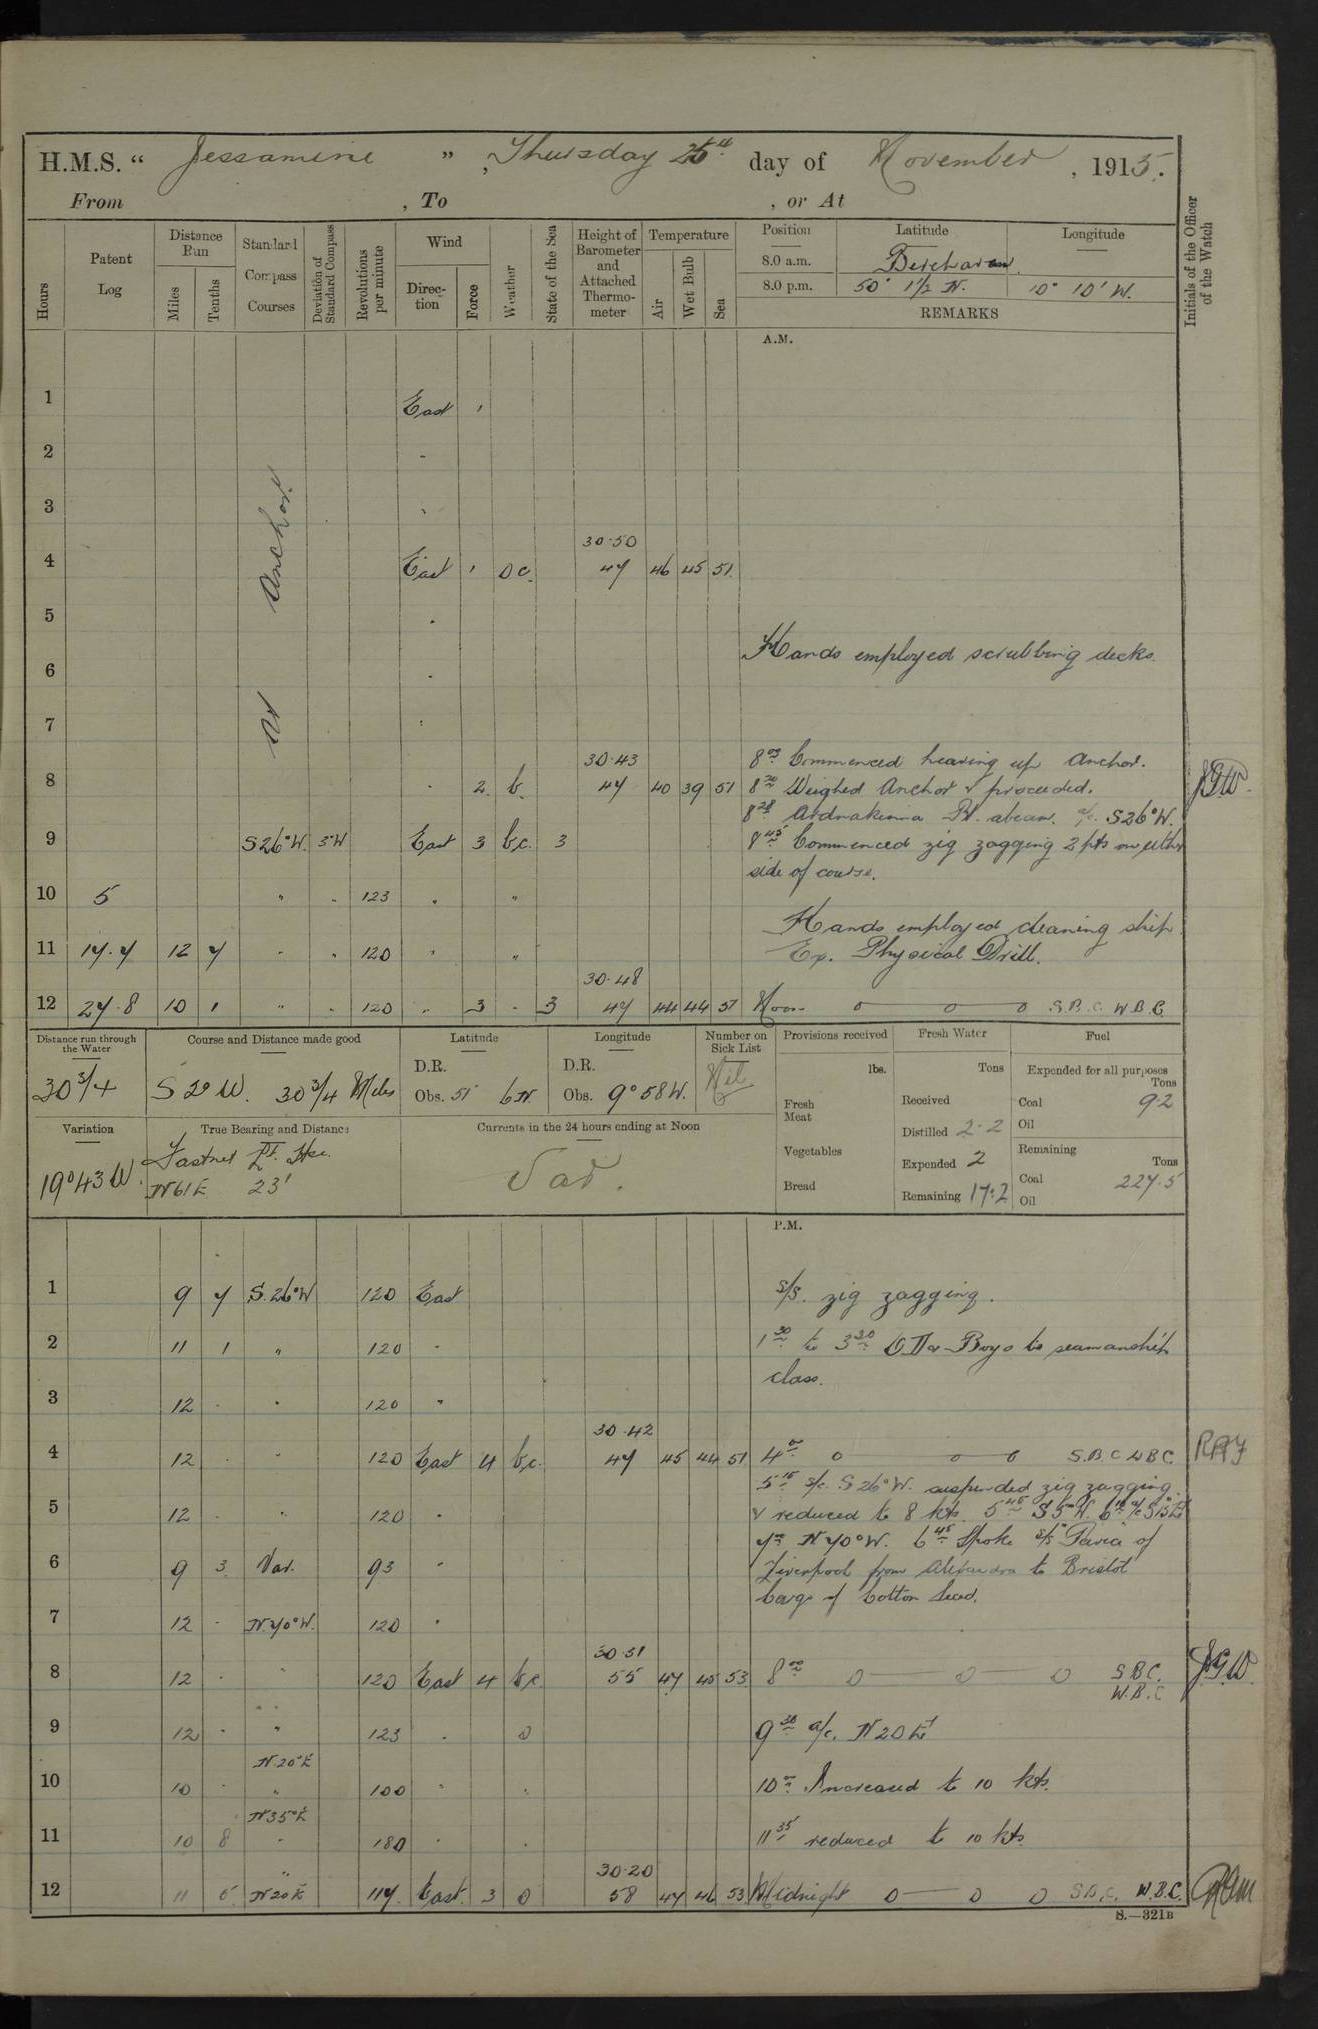 H.M.S. “ Jessamine ” , Thursday 25th day of November , 1915.
From , To , or At
Hours
Patent Log
Distance Run
Miles
Tenths
Standard Compass Courses
Deviation of Standard Compass
Revolutions per minute
Wind
Direction
Force
Weather
State of the Sea
Height of Barometer and Attached Thermometer
Temperature
Air
Wet Bulb
Sea
Position Latitude Longitude
8.0 a.m. Berehaven
8.0 p.m. 50° 1½ N. 10° 10' W.
REMARKS
Initials of the Officer of the Watch
A.M.
At Anchor.
1 East 1
2 "
3 "
30.50
4 East 1 47 46 45 51
5 "
Hands employed scrubbing decks.
6 "
7 "
30.43 8 Commenced heaving up Anchor.
8 " 2 b. 47 40 39 51 8 Weighed Anchor & proceeded. JGW.
8 28 Ardnakinna Pt. abeam. a/c S26°W.
9 S26°W. 5°W East 3 bc. 3 8 45 Commenced zig zagging 2 pts on either
side of course.
10 5 " " 123 " "
Hands employed cleaning ship
11 17.7 12 7 " " 120 " " Ex. Physical Drill.
30.48
12 27.8 10 1 " " 120 " 3 " 3 47 44 44 51 Noon o o o S.B.C. W.B.C
Distance run through the Water
30 3/4
Course and Distance made good
S 2° W. 30 3/4 Miles
Latitude
D.R.
Obs. 51 6 N.
Longitude
D.R.
Obs. 9° 58 W.
Number on Sick List
Nil
Variation
19°43 W.
True Bearing and Distance
Fastnet Lt. Hse.
N61E 23'
Currents in the 24 hours ending at Noon
Var.
Provisions received
lbs.
Fresh Meat
Vegetables
Bread
Fresh Water
Tons
Received
Distilled 2.2
Expended 2
Remaining 17.2
Fuel
Expended for all purposes
Tons
Coal 9.2
Oil
Remaining
Tons
Coal 227.5
Oil
P.M.
1 9 7 S.26°W 120 East s/s. zig zagging.
2 11 1 " 120 " 1 30 to 3 30 Boys to seamanship
class.
3 12 . " 120 "
30.42
4 12 . " 120 East 4 bc. 47 45 44 51 4 00 o o o S.B.C W.B.C
5 15 S26°W. suspended zig zagging
5 12 . " 120 " & reduced to 8 kts. 5 45 S5°W.
7 00 N70°W. 6 45 Spoke s/s "Pavia" of
6 9 3 Var. 93 " Liverpool from Alexandra to Bristol
Cargo of Cotton Seed.
7 12 . N.70°W. 120 "
30.51
8 12 . " 120 East 4 bc. 55 47 45 53 8 00 o o o S.B.C. J.G.W.
W.B.C
9 12 . " 123 . o 9 30 a/c. N20E
N.20°E
10 10 . " 100 " " 10 00 Increased to 10 kts.
N35°E
11 10 8 " 180 " " 11 35 reduced to 10 kts
30.20
12 11 5 N20E 117. East. 3 o 58 47 46 53 Midnight o o o S.B.C. W.B.C.
S.—321B